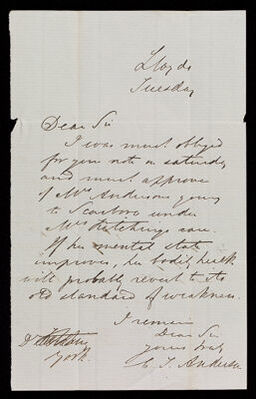 Lloyds
Tuesday
Dear Sir
I was much obliged
for your note on Saturday
and must approve
of Mrs Andersons going
to Scarboro under
Mrs care.
If her mental state
improves, her bodily health
will probably revert to its
old standard of weakness.
I remain
Dear Sir
Yours truly
C. J. Anderson
York.